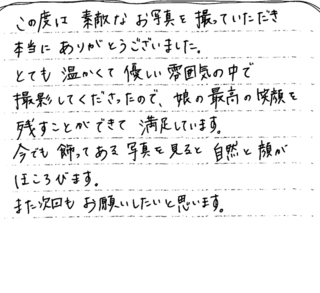 この度は 素敵な お写真を 撮っていただき
本当に ありがとうございました。
とても 温かくて 優しい 雰囲気の中で
撮影してくださったので、娘の最高の笑顔を
残すことができて 満足しています。
今でも 飾ってある 写真を見ると 自然と 顔が
ほころびます。
また次回も お願いしたいと思います。